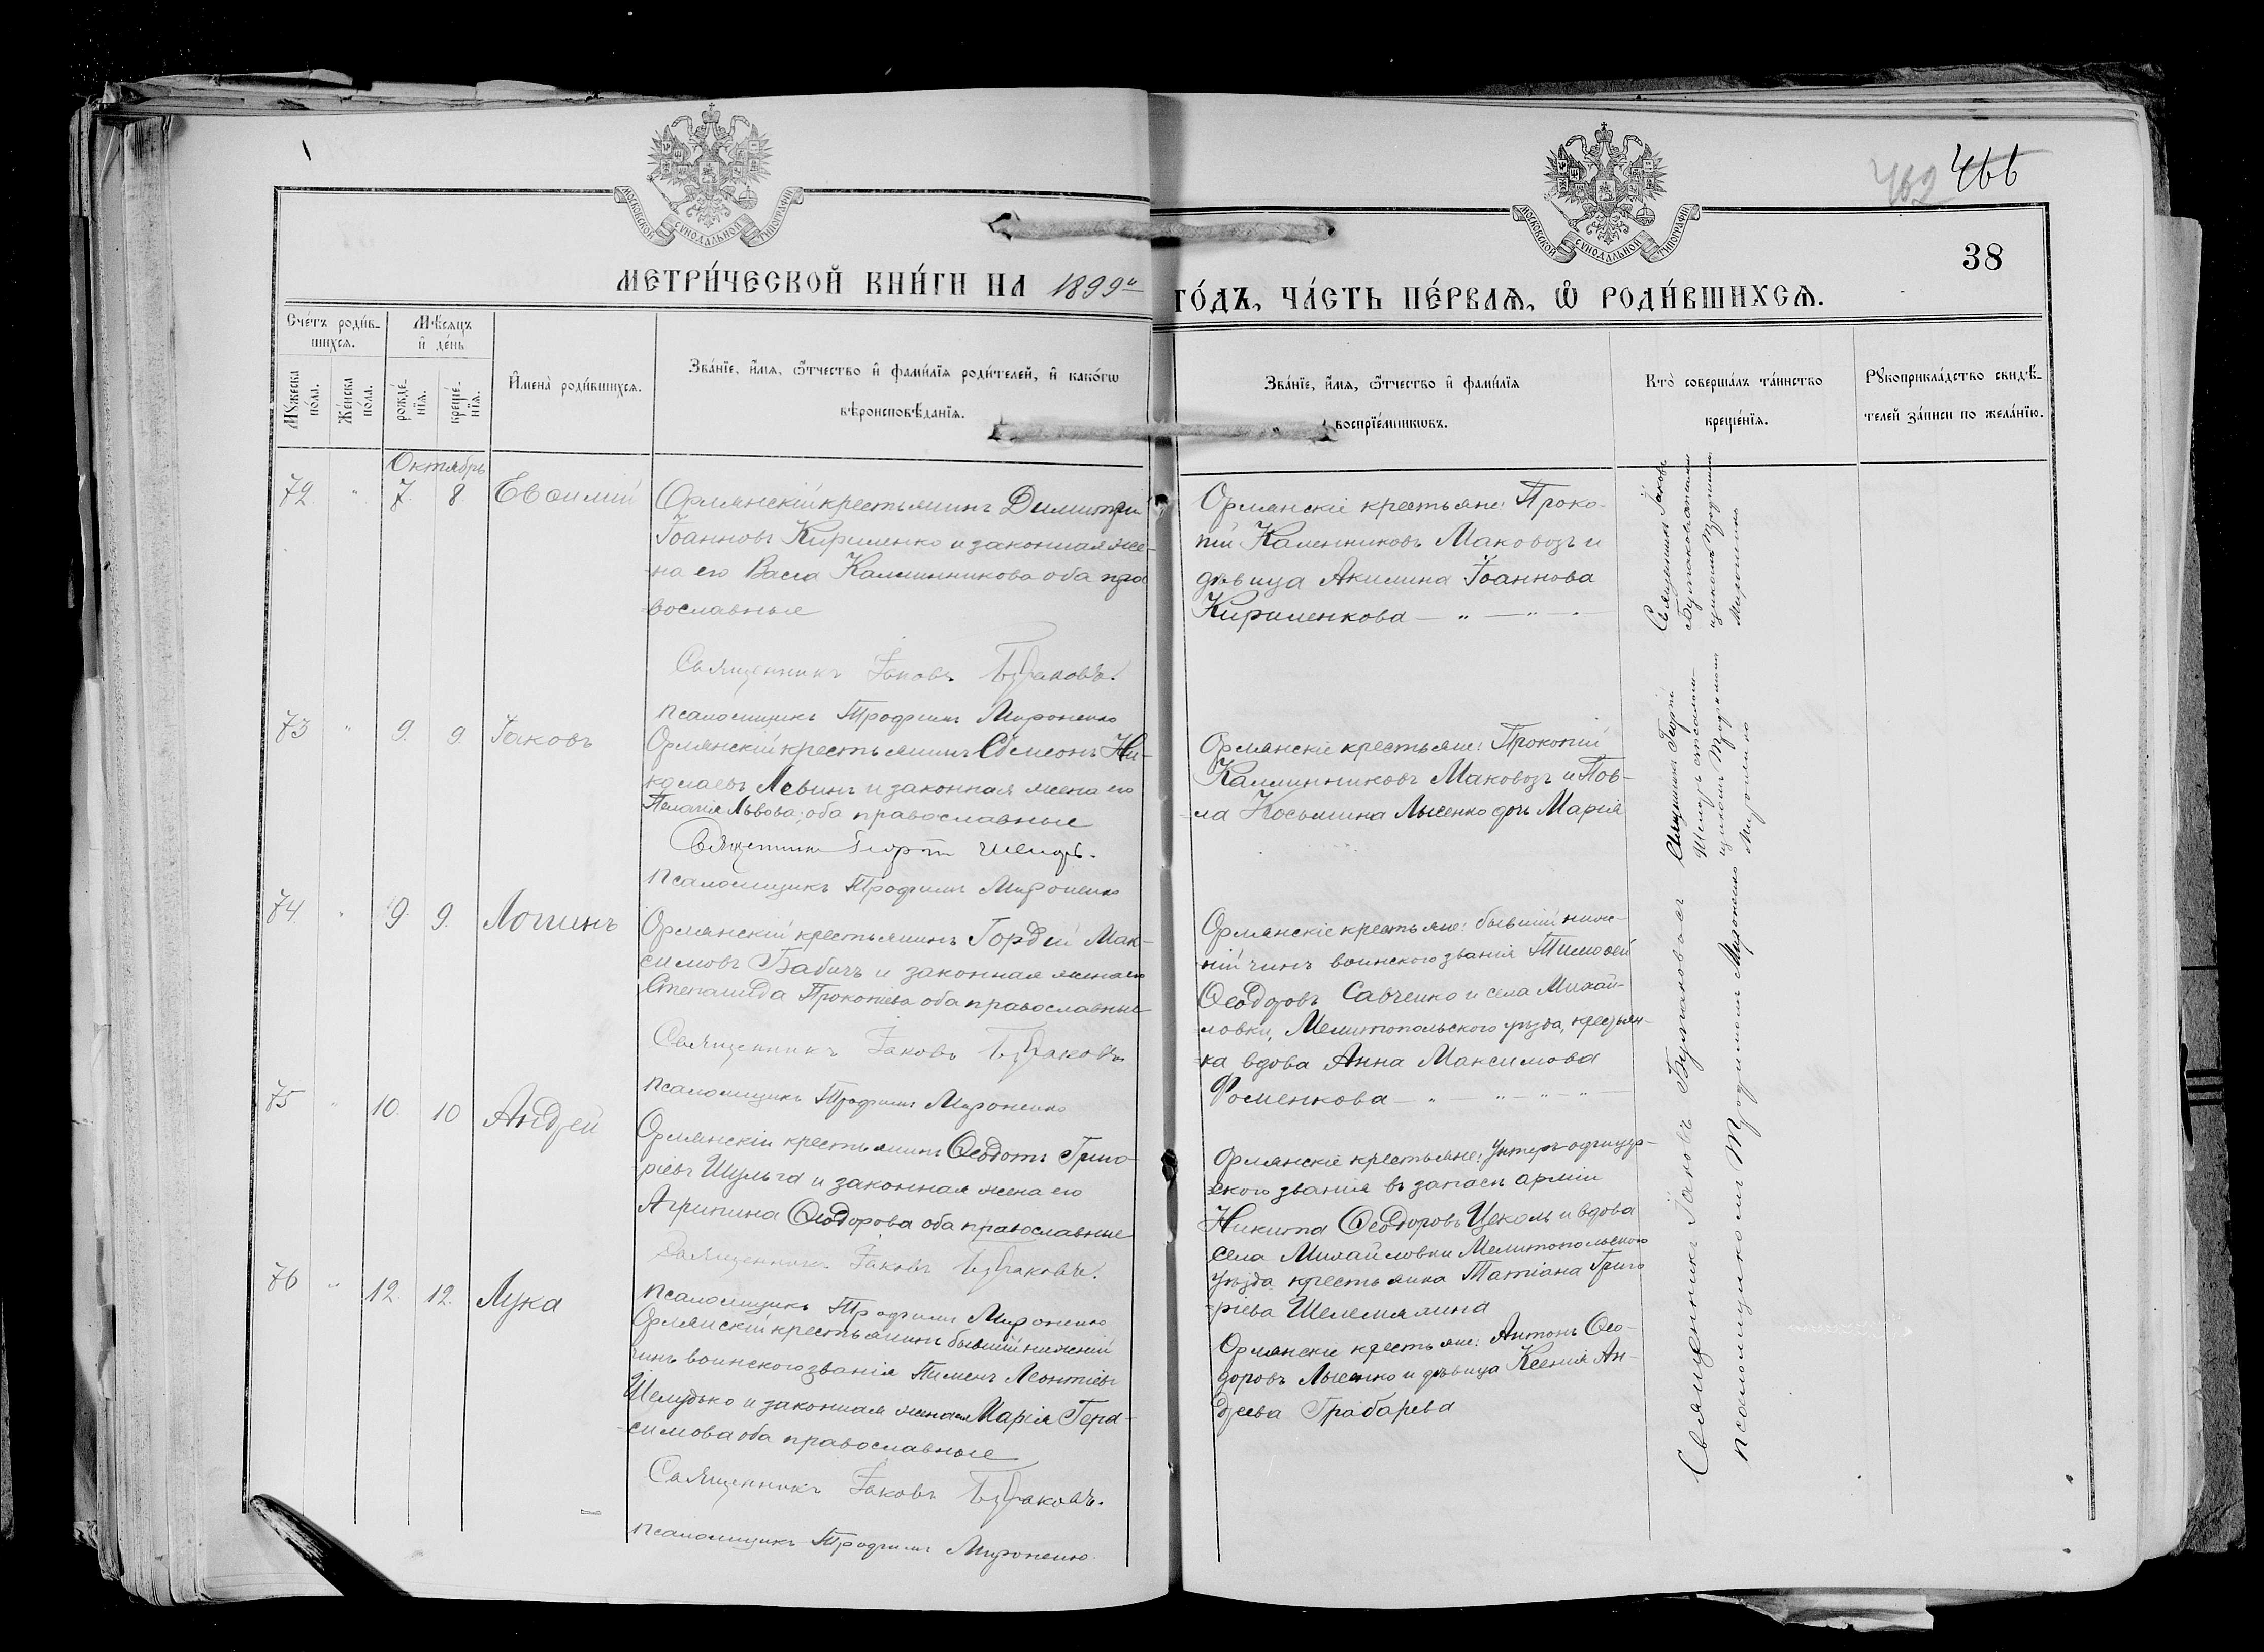 462 466
38
МОСКОВСКОЙ СУНОДАЛЬНОЙ ТИПОГРАФІИ
МОСКОВСКОЙ СУНОДАЛЬНОЙ ТИПОГРАФІИ
МЕТРИ́ЧЕСКОЙ КНИ́ГИ НА 1899 ГО́ДЪ, ЧА́СТЬ ПЕ́РВАѦ, Ѽ РОДИ́ВШИХСѦ.
Сче́тъ роди́в-
шихсѧ.
Мꙋ́жеска
пола.
Же́нска
по́ла.
Мѣ́сѧцъ
и҆ де́нь
рожде́-
нїѧ.
креще́-
нїѧ.
И҆мена̀ роди́вшихсѧ.
Зва́нїе, и҆́мѧ, ѻ҆́тчество и҆ фами́лїѧ роди́телей, и҆ како́гѡ
вѣроисповѣ́данїѧ.
Зва́нїе, и҆́мѧ, ѻ҆́тчество и҆ фами́лїѧ
воспрїе́мникѡвъ.
Кто̀ соверша́лъ та́инство
креще́нїѧ.
Рꙋкоприкла́дство свидѣ́-
телей за́писи по жела́нїю.
Октябрь
72. " 7. 8. Евѳимій
Орлянскій крестьянинъ Димитрій
Іоанновъ Кириленко и законная же-
на его Васса Калинникова оба пра
вославные
Священникъ Іаковъ Бутаковъ.
Псаломщикъ Трофимъ Мироненко
Орлянскіе крестьяне: Проко-
пій Калинниковъ Маковозъ и
дѣвица Акилина Іоаннова
Кириленкова — " — " — "
Священникъ Іаковъ
Бутаковъ съ псалом-
щикомъ Трофимомъ
Мироненко
73 " 9. 9. Іаковъ
Орлянскій крестьянинъ Симеонъ Ни-
колаевъ Левинъ и законная жена его
Пелагія Львова; оба православные
Священникъ Георгій
Псаломщикъ Трофимъ Мироненко
Орлянскіе крестьяне: Прокопій
Калинниковъ Маковозъ и Пав-
ла Косьмина Лысенко дочь Марія
Священникъ Георгій
съ псалом-
щикомъ Трофимомъ
Мироненко
74. " 9. 9. Логинъ
Орлянскій крестьянинъ Гордій Мак-
симовъ Бабичъ и законная жена его
Степанида Прокопіева оба православные
Священникъ Іаковъ Бутаковъ
Псаломщикъ Трофимъ Мироненко
Орлянскіе крестьяне: бывшій ниж-
ній чинъ воинского званія Тимоѳей
Ѳеодоровъ Савченко и села Михай-
ловки, Мелитопольского уѣзда, крестьян-
ка вдова Анна Максимова
Фоменкова — " — " — " — "
75 " 10. 10 Андрей
Орлянскій крестьянинъ Ѳеодотъ Григо-
ріевъ Шульга и законная жена его
Агрипина Ѳеодорова оба православные
Священникъ Іаковъ Бутаковъ.
Псаломщикъ Трофимъ Мироненко
Орлянскіе крестьяне: Унтеръ-офицер-
ского званія въ запасѣ арміи
Никита Ѳеодоровъ Цеколь и вдова
села Михайловки Мелитопольского
уѣзда крестьянка Татіана Григо
ріева Шелемялина
76 " 12. 12. Лука
Орлянскій крестьянинъ бывшій нижній
чинъ воинского званія Пименъ Леонтіевъ
Шелудько и законная жена его Марія Гера-
симова оба православные
Священникъ Іаковъ Бутаковъ.
Псаломщикъ Трофимъ Мироненко.
Орлянскіе крестьяне: Антонъ Ѳео-
доровъ Лысенко и дѣвица Ксенія Ан-
дреева Грабарева
Священникъ Іаковъ Бутаковъ съ
псаломщикомъ Трофимомъ Мироненко